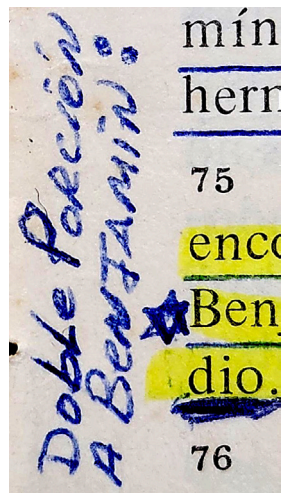 Doble Porción
A Benjamín:
mín
hern
75
enco
Ben
dio.
76